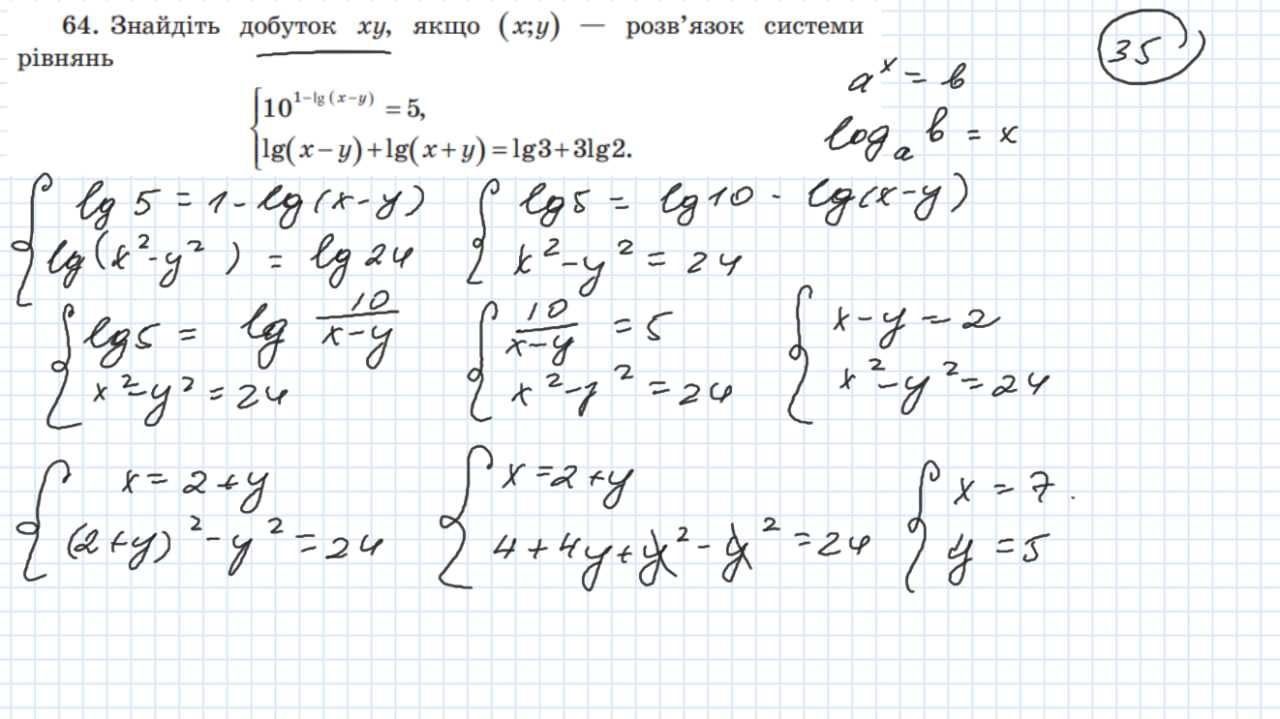 64. Знайдіть добуток xy, якщо (x;y) — розв’язок системи
рівнянь
{10^(1−lg(x−y)) = 5,
{lg(x−y)+lg(x+y)=lg3+3lg2.
35
a^x = b
log_a b = x
{lg 5 = 1 - lg(x-y)
{lg(x²-y²) = lg 24
{lg5 = lg10 - lg(x-y)
{x²-y² = 24
{lg5 = lg 10/(x-y)
{x²-y² = 24
{10/(x-y) = 5
{x²-y² = 24
{x-y = 2
{x²-y² = 24
{x = 2+y
{(2+y)² - y² = 24
{x = 2+y
{4+4y+y²-y² = 24
{x = 7.
{y = 5